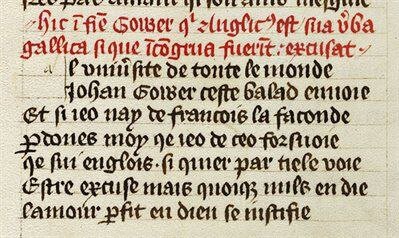 hic ī fīe Gower qi Anglicꝰ est sua v̄ba
gallica si que īcōgrua fuerīt · excusat ·
l vniūsite de toute le monde
Johan Gower ceste balad enuoie
Et si ieo nay de francois la faconde
ꝑdones moy qe ieo de ceo forsuoie
qe sui englois · si quier par tiele voie
Estre excuse mais quoiqe nuls en die
lamour ꝑfit en dieu se iustifie